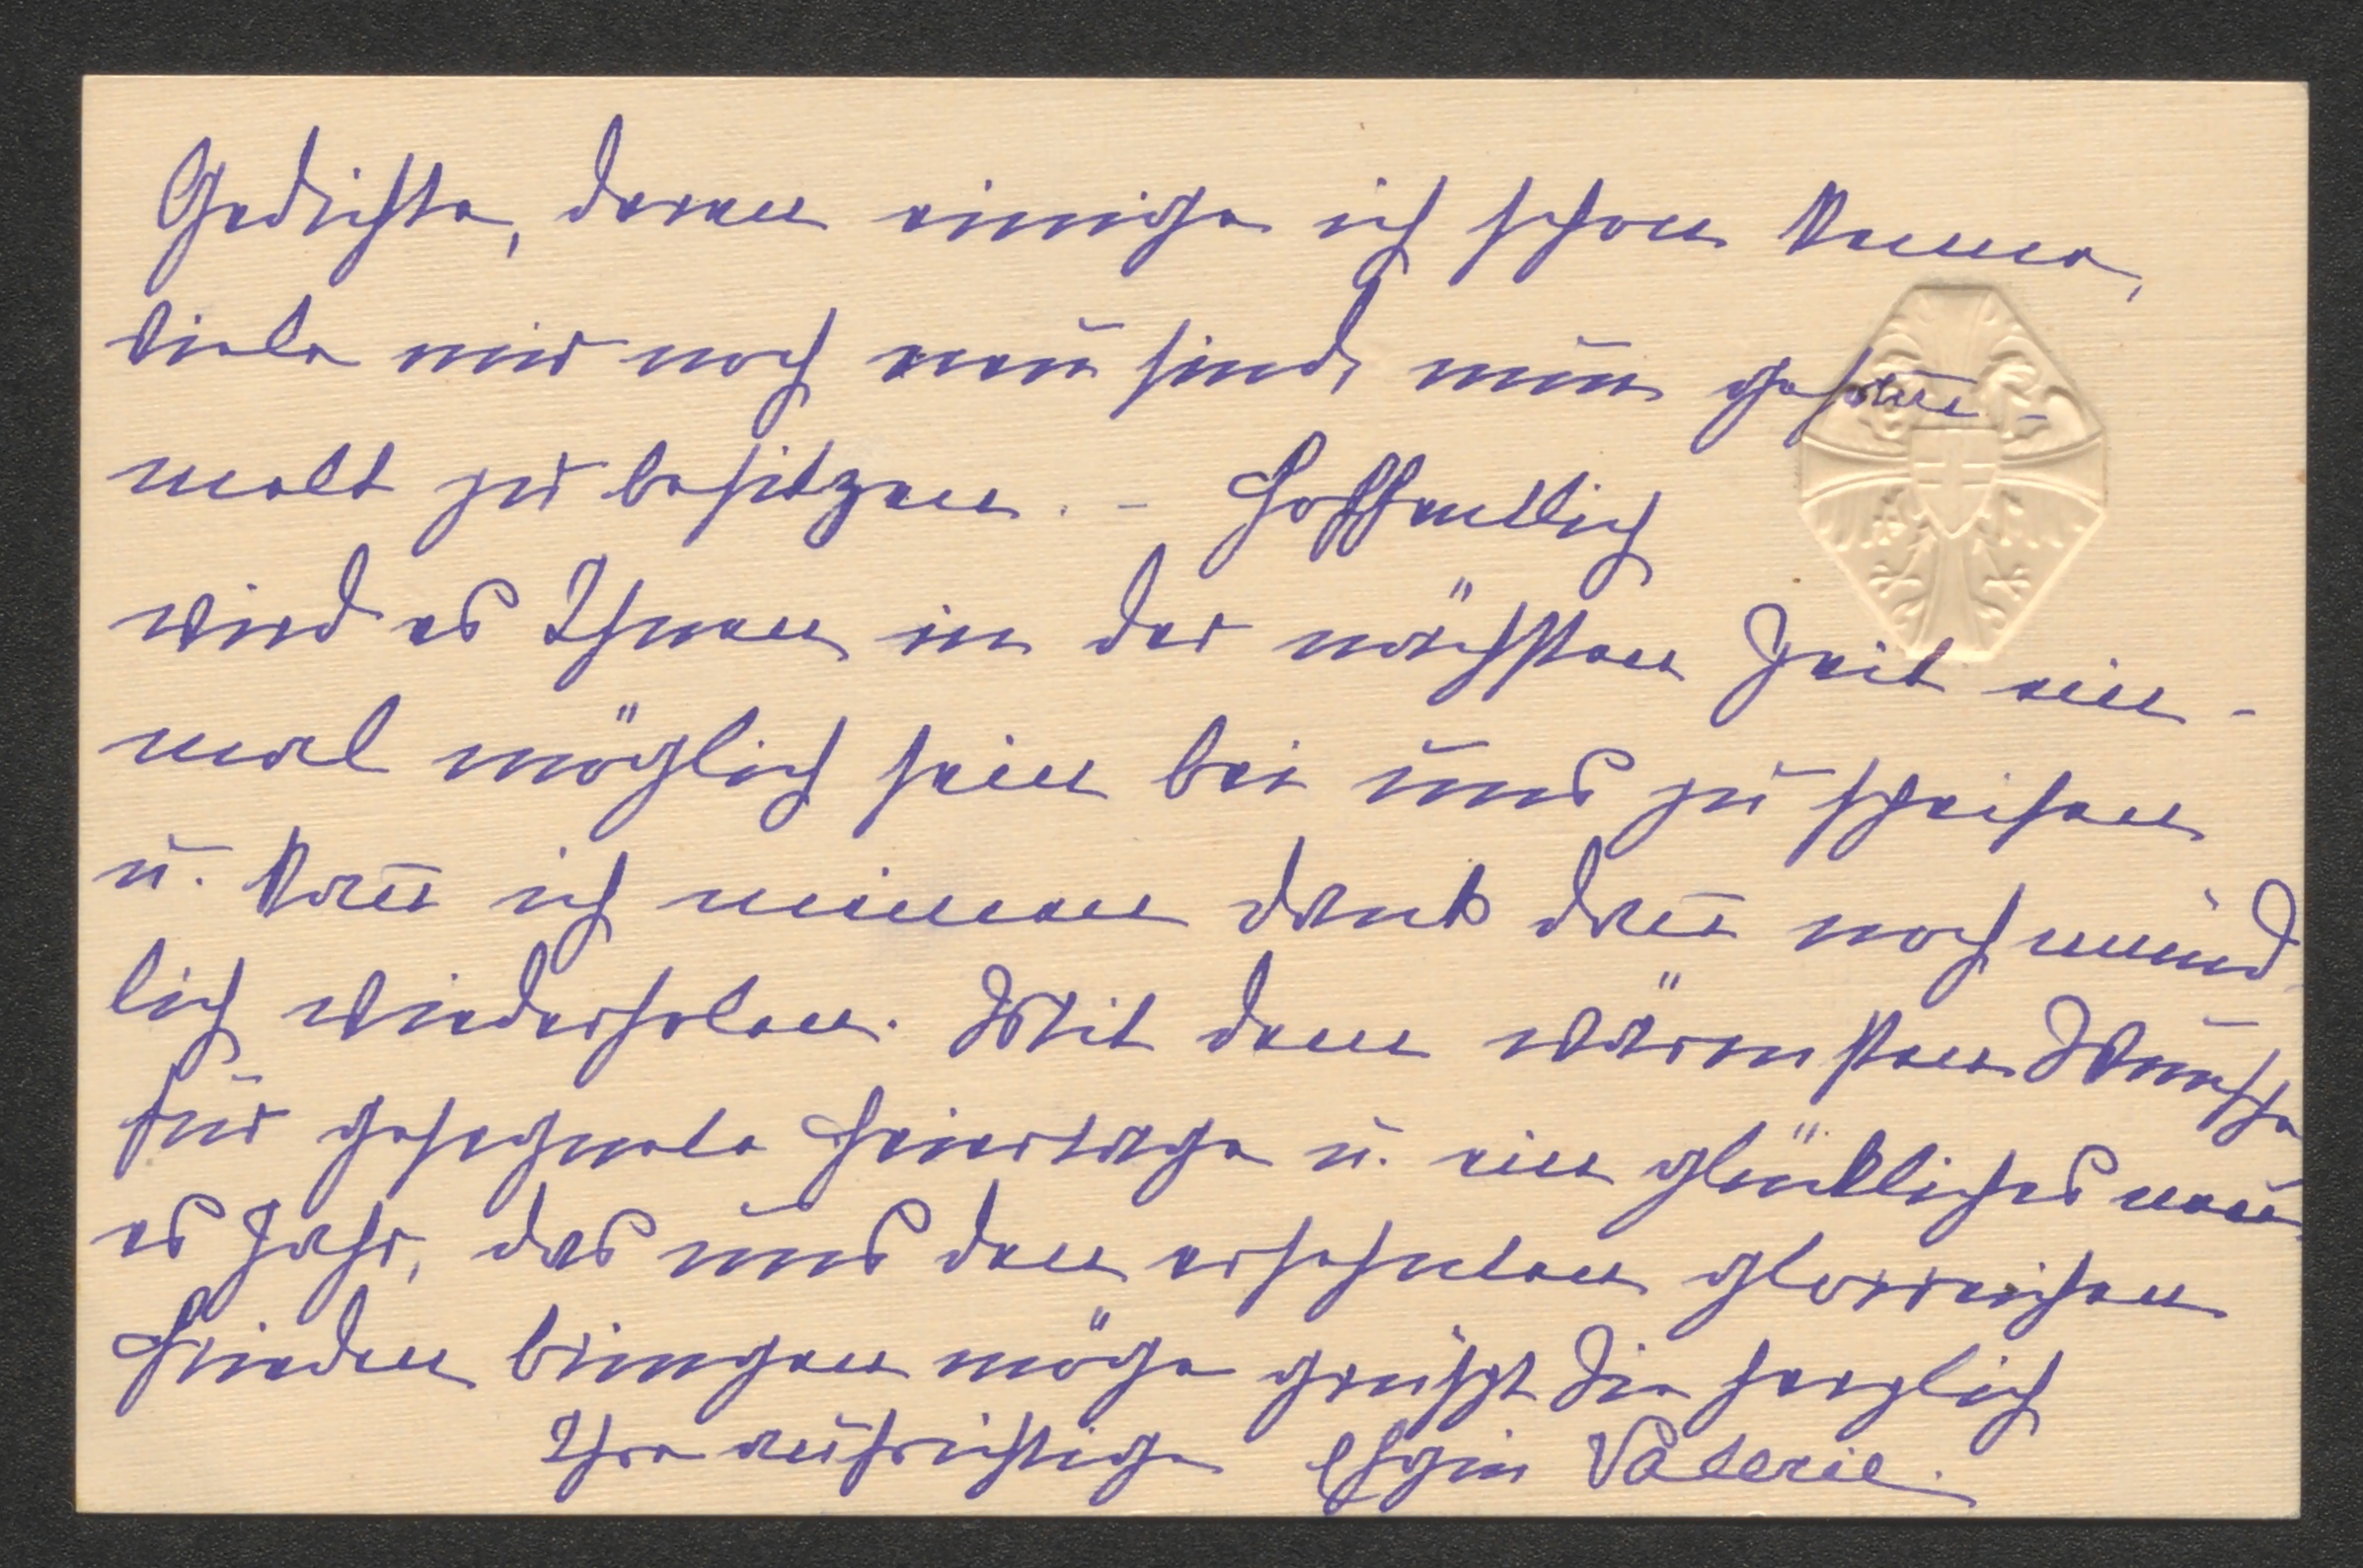 Gedichte, deren einige ich schon kenne,
viele mir noch neu sind, nun gesam̅-
melt zu besitzen. - Hoffentlich
wird es Ihnen in der nächsten Zeit ein-
mal möglich sein bei uns zu speisen
u. kan̅ ich meinen Dank dan̅ noch münd-
lich wiederholen. Mit den wärmsten Wünschen
für gesegnete Feiertage u. ein glückliches neu-
es Jahr, das uns den ersehnten glorreichen
Frieden bringen möge grüßt Sie herzlich
Ihre aufrichtige Ehgin Valerie.